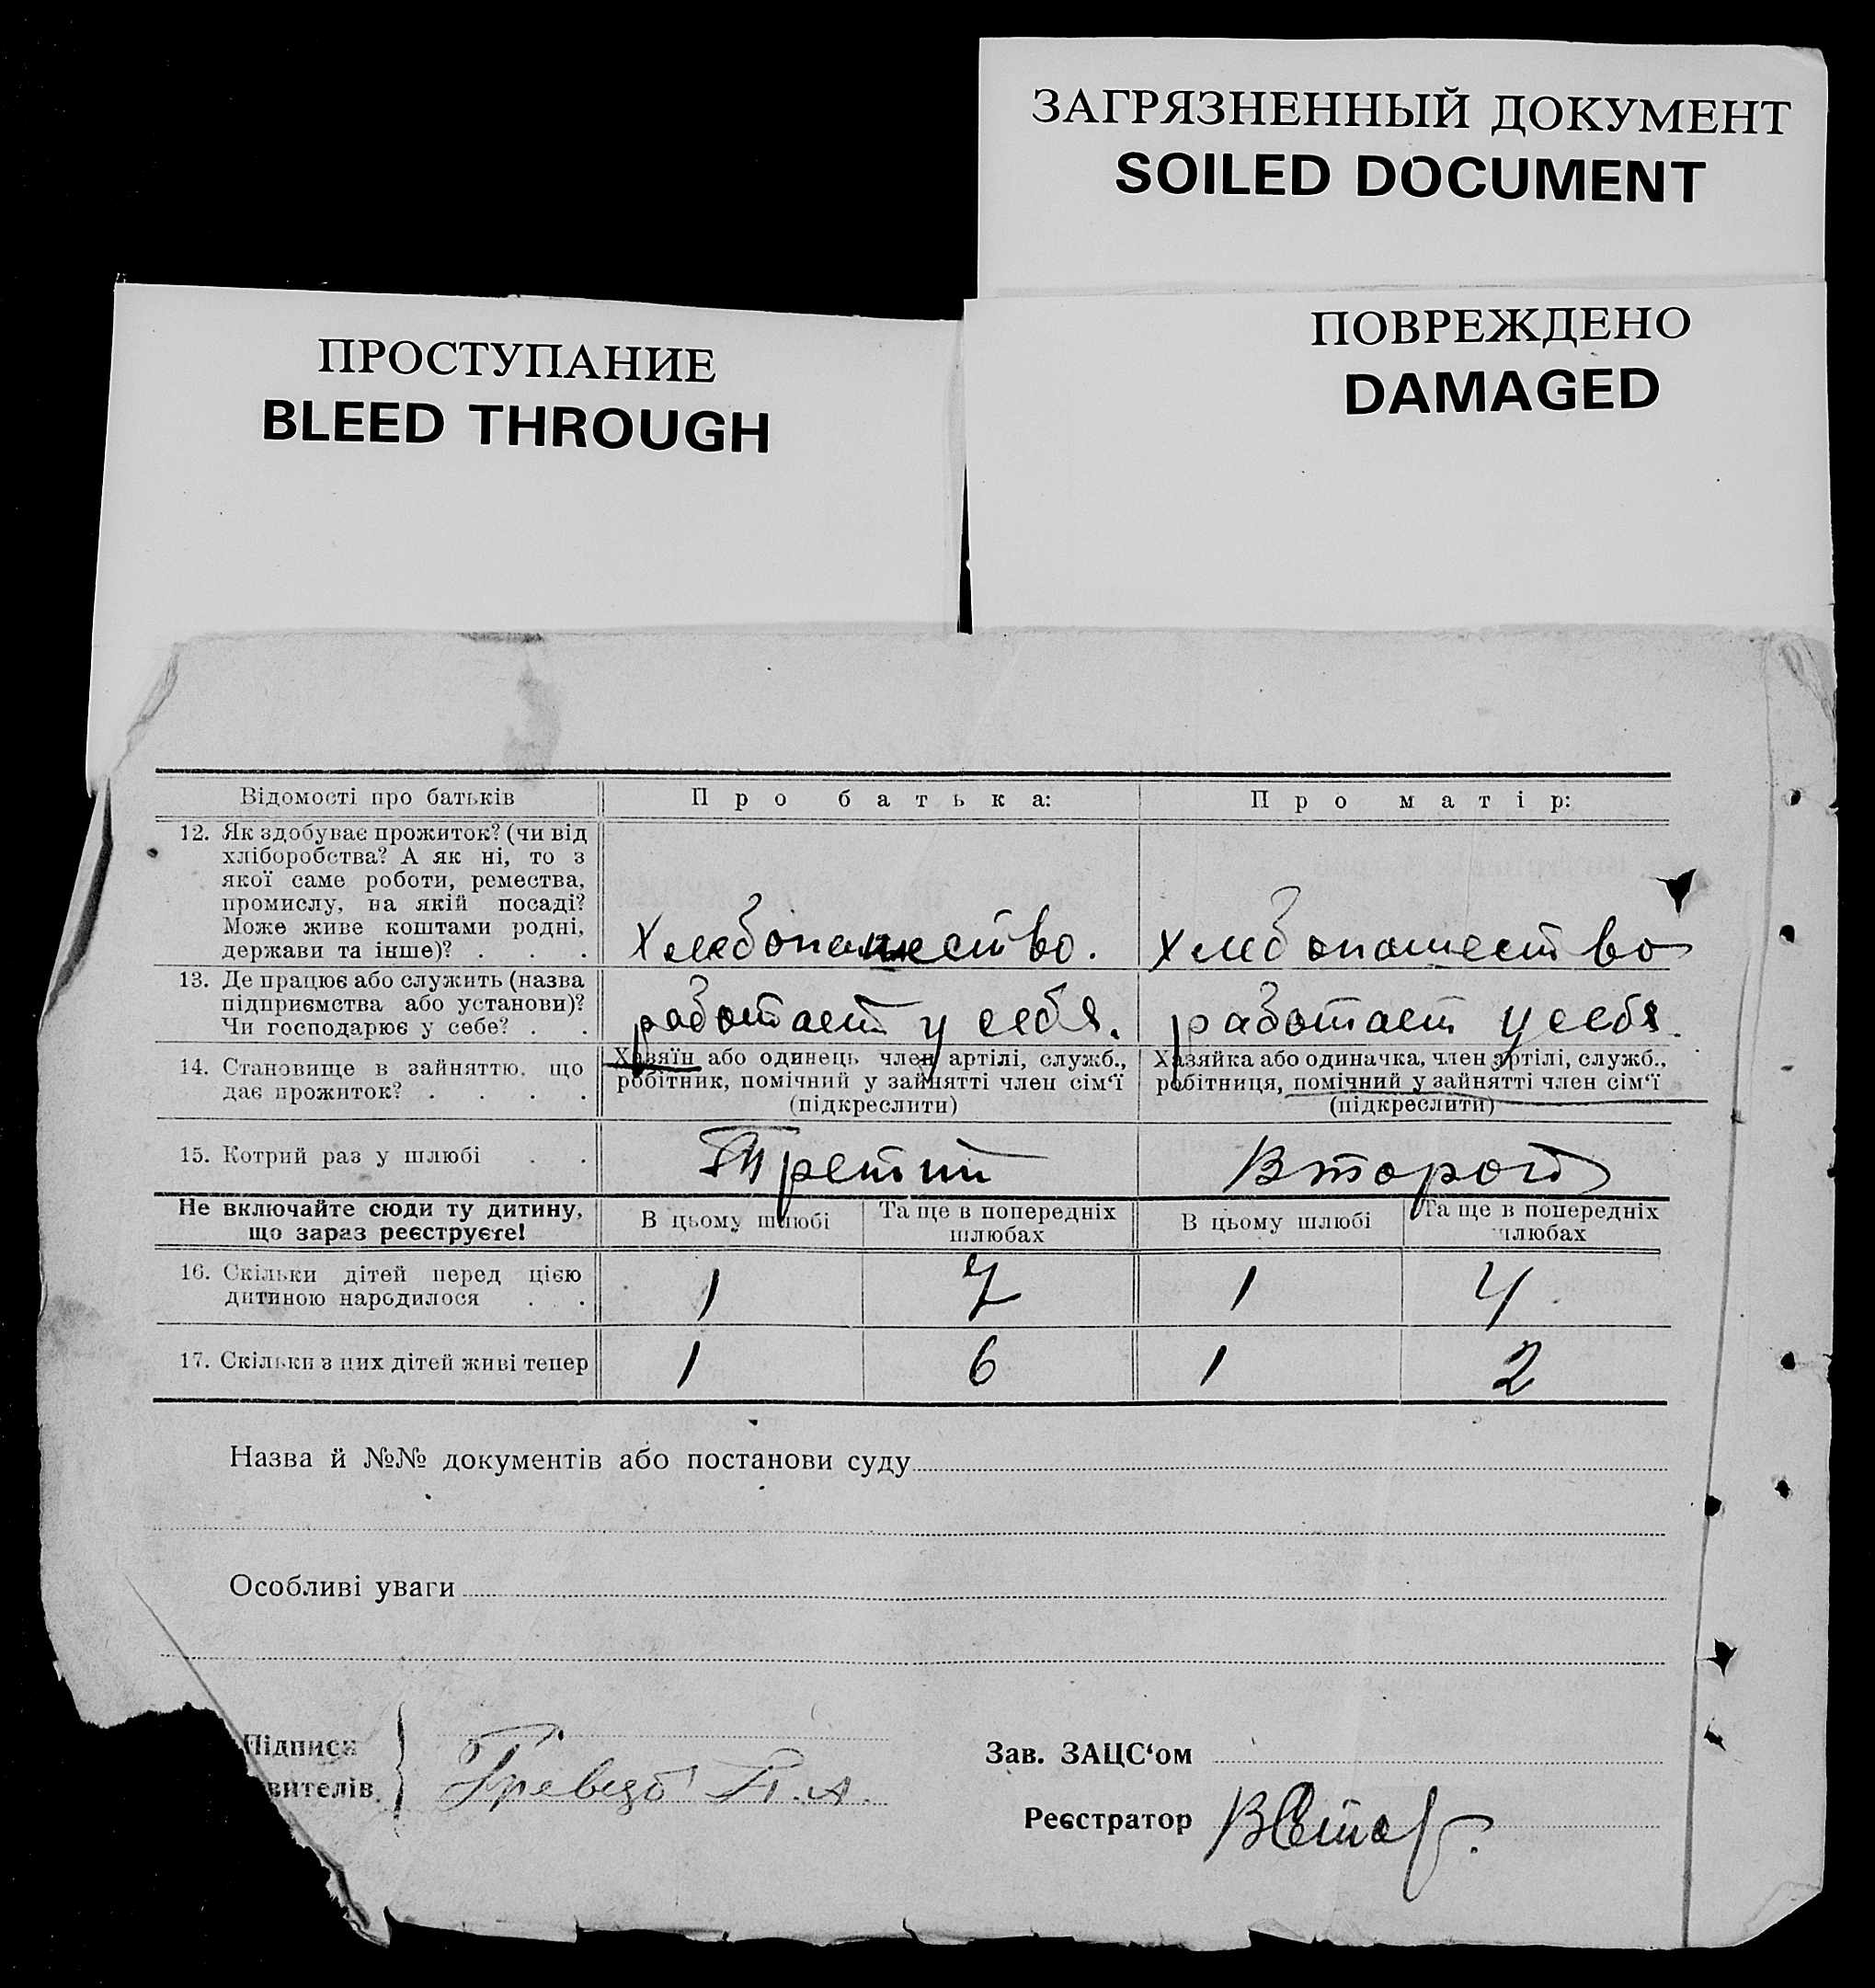 ЗАГРЯЗНЕННЫЙ ДОКУМЕНТ
SOILED DOCUMENT
ПОВРЕЖДЕНО
DAMAGED
ПРОСТУПАНИЕ
BLEED THROUGH
Відомості про батьків
Про батька:
Про матір:
12. Як здобуває прожиток? (чи від
хліборобства? А як ні, то з
якої саме роботи, ремества,
промислу, на якій посаді?
Може живе коштами родні,
держави та інше)? . . .
Хлебопашество.
Хлебопашество
13. Де працює або служить (назва
підприємства або установи)?
Чи господарює у себе? . .
работает у себя.
работает у себя.
14. Становище в зайняттю, що
дає прожиток? . . . .
Хазяїн або одинець член артілі, служб.,
робітник, помічний у зайнятті член сім'ї
(підкреслити)
Хазяйка або одиначка, член артілі, служб.,
робітниця, помічний у зайнятті член сім'ї
(підкреслити)
15. Котрий раз у шлюбі . .
Третий
Второй
Не включайте сюди ту дитину,
що зараз реєструєте!
В цьому шлюбі
Та ще в попередніх
шлюбах
В цьому шлюбі
Та ще в попередніх
шлюбах
16. Скільки дітей перед цією
дитиною народилося . .
1 7 1 4
17. Скільки з цих дітей живі тепер
1 6 1 2
Назва й №№ документів або постанови суду
Особливі уваги
Підписи
вителів
П. А.
Зав. ЗАЦС'ом
Реєстратор